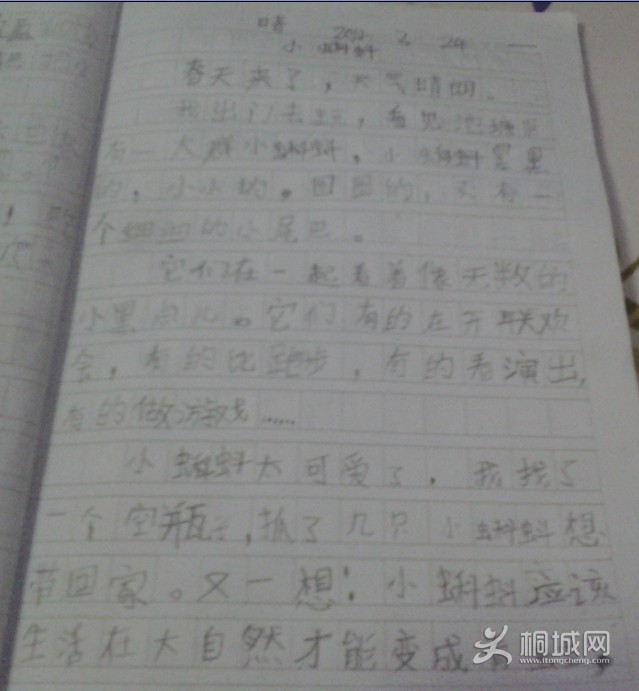 晴 2 24
小蝌蚪
春天来了，天气晴朗。
我出门去玩，看见池塘里
有一大群小蝌蚪，小蝌蚪黑黑
的，小小的。圆圆的，又有一
个细细的小尾巴。
它们在一起看着像无数的
小黑点儿。它们有的在开联欢
会，有的比跑步，有的看演出，
有的做游戏……
小蝌蚪太可爱了，我找了
一个空瓶子，抓了几只小蝌蚪想
带回家。又一想！小蝌蚪应该
生活在大自然才能变成
桐城网
www.itongcheng.com